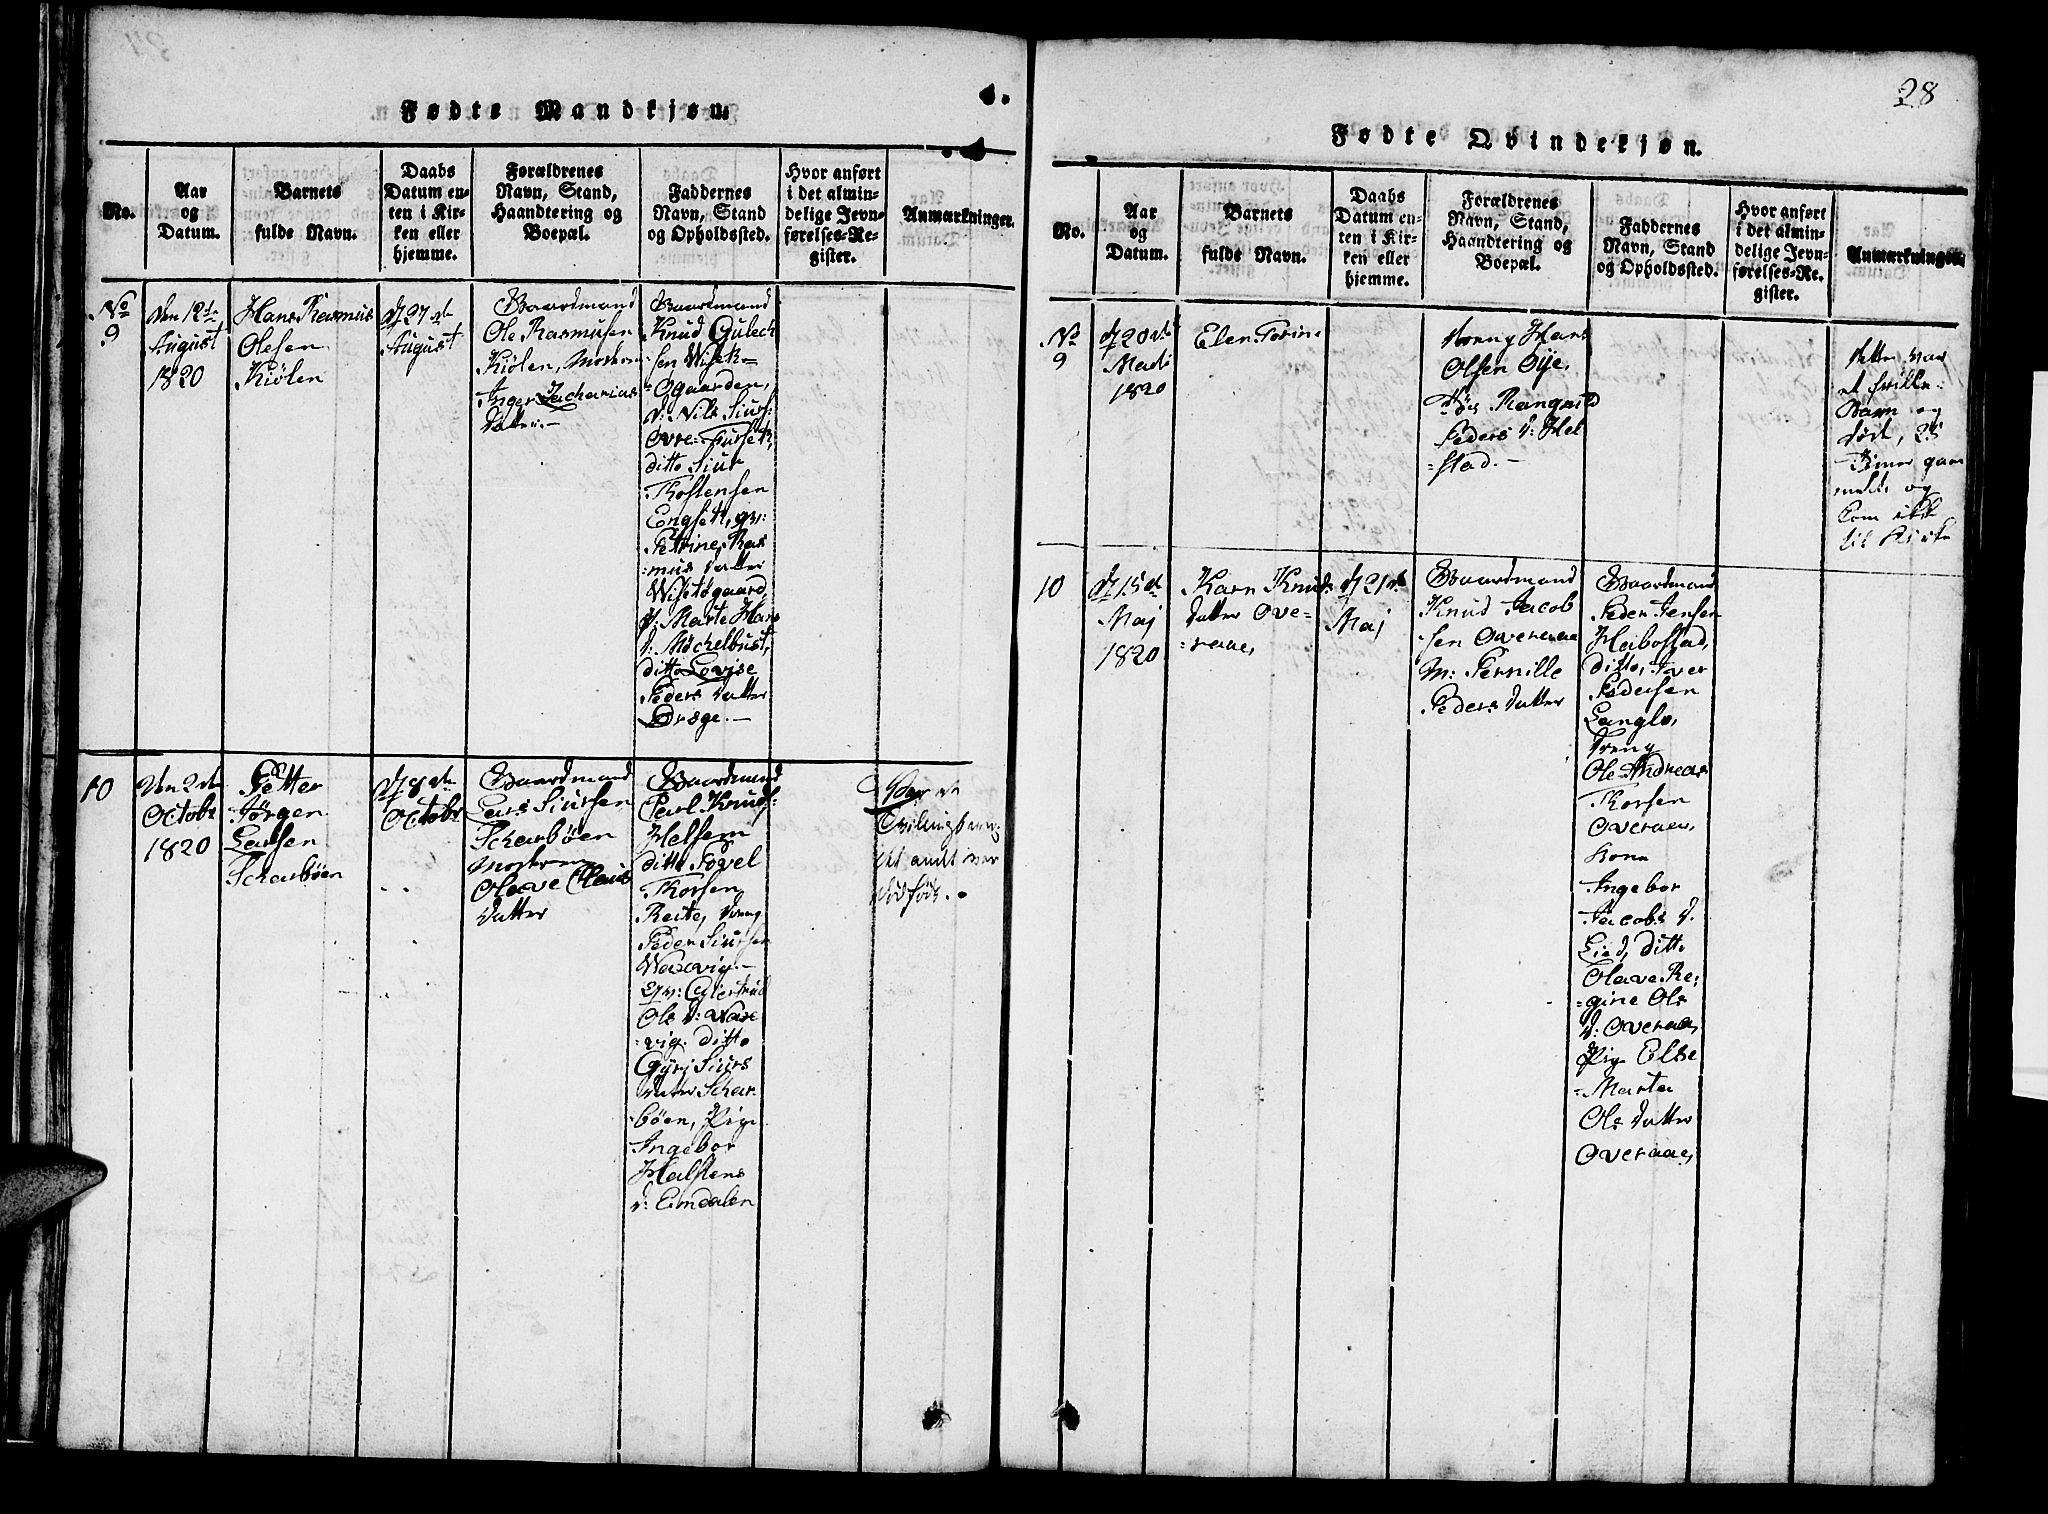 Fødte Mandkjøn.
No.
Aar
og
Datum.
Barnets
fulde Navn.
Daabs
Datum en-
ten i Kir-
ken eller
hjemme.
Forældrenes
Navn, Stand,
Haandtering og
Boepæl.
Faddernes
Navn, Stand
og Opholdssted.
Hvor anført
i det almin-
delige Jevn-
førelses-Re-
gister.
Anmærkninger.
No
9
Den 12te
August
1820
Hans Rasmus
Olesen
Kiølen
d 27de
August
Gaardmand
Ole Rasmusen
Kiølen, Moderen
Inger Zacharias
Datter.-
Gaardmand
Knud Gulech
sen Wiset-
-øgaarden,
d: Nils Siurs:
Ovre-Furset,
ditto Siur
Thostensen
Engset, qv:
Petrine Ras
-mus Datter
Wisetøgaard,
d: Marte Hans
d: Mochelbust,
ditto Lovise
Peders Datter
Drage.-
10
Den 2de
Octobr
1820
Petter
Jørgen
Larsen
Scharbøen
d 8de
Octobr
Gaardmand
Lars Siursen
Scharbøen
Moderen
Olave Claus
Datter
Gaardmand
Carl Knuds:
Helsem
ditto Povel
Thorsen
Reite, Dreng
Peder Siursen
Waxvig.-
Qv: Giertrud
Ole d: Waxe
-vig. ditto
Gyri Siurs
Datter Schar
-bøen, Pige
Ingebor
Halstens
d: Emdalen
var de
Tvilingbørn,
det andet var
dødfødt.
28
Fødte Qvindekjøn.
No.
Aar
og
Datum.
Barnets
fulde Navn.
Daabs
Datum en-
ten i Kir-
ken eller
hjemme.
Forældrenes
Navn, Stand,
Haandtering og
Boepæl.
Faddernes
Navn, Stand
og Opholdssted.
Hvor anført
i det almin-
delige Jevn-
førelses-Re-
gister.
Anmærkninger.
No
9
d 20de
Madi
1820
Elen Perine
Dreng Hans
Olsen Øye,
Pig Rangnild
Peders d: Hel
-stad.-
dette var
et
Barn og
døde, 25
Timer gam
melt, og
kom ikke
til Kirke
10
d 15de
Maj
1820
Karn Knuds
datter Ove-
-raae,
d 21de
Maj
Gaardmand
Knud Jacob
sen Overaae
M: Pernille
Peders Datter
Gaardmand
Peder Jensen
Heibostad,
ditto, Iver
Pedersen
Langlo,
Dreng
Ole Andreas
Thorsen
Overaae,
Kone
Ingebor
Jacobs d.
Lied, ditto
Olave Re,
-gine Ols
d: Overaae,
Pige Else
-Marta
Ols Datter
Overaae,